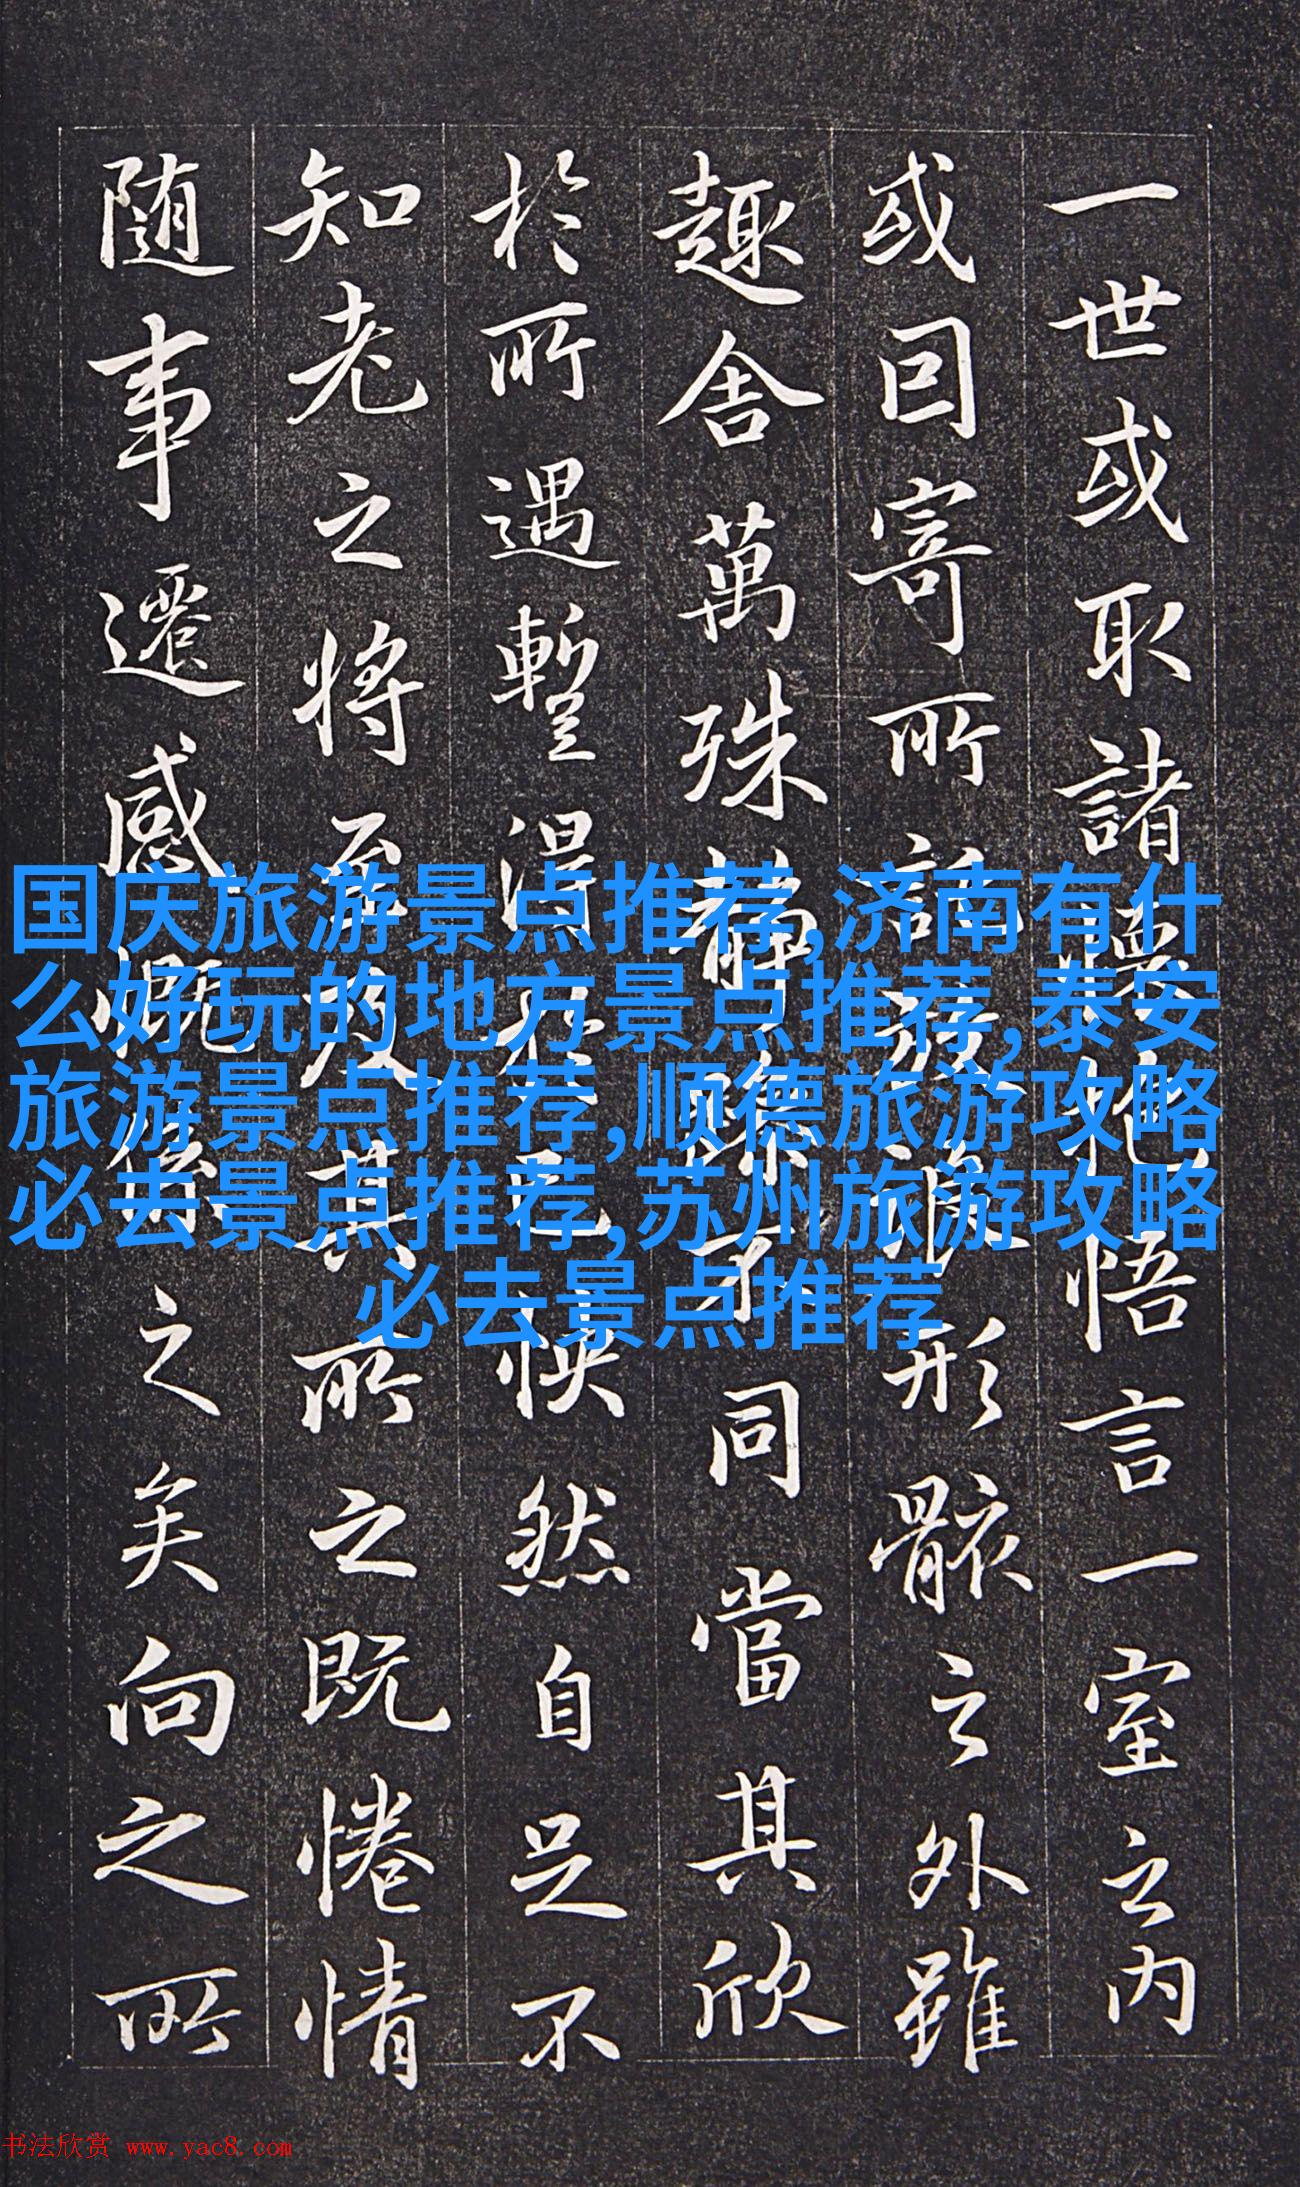 一世或取諸懷抱悟言一室之内
或囙寄所託放浪形骸之外雖
趣舍萬殊静躁不同當其欣
於所遇暫得於己快然自足不
知老之将至及其所之既惓情
随事遷感慨係之矣向之所
国庆旅游景点推荐,济南有什
么好玩的地方景点推荐,泰安
旅游景点推荐,顺德旅游攻略
必去景点推荐,苏州旅游攻略
必去景点推荐
书法欣赏 www.yac8.com